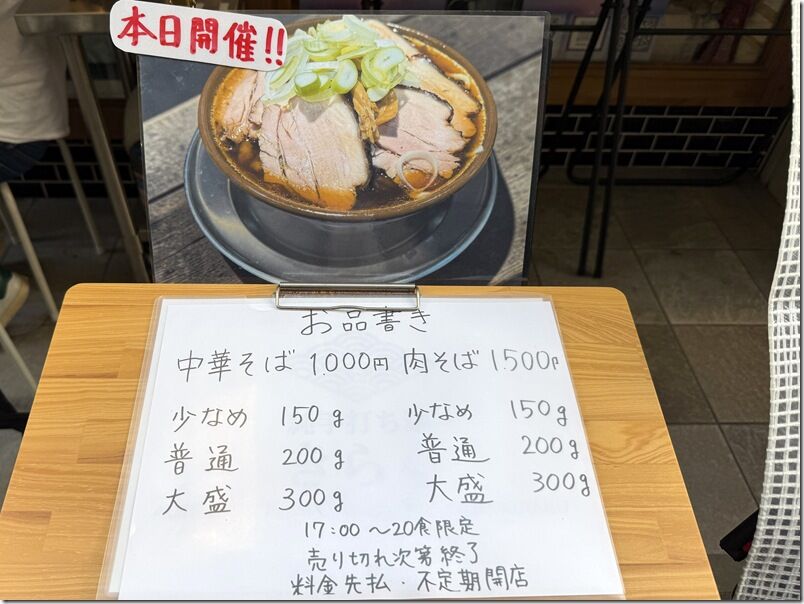 本日開催!!
お品書き
中華そば 1000円 肉そば 1500円
少なめ 150g 少なめ 150g
普通 200g 普通 200g
大盛 300g 大盛 300g
17:00 〜20食限定
売り切れ次第終了
料金先払・不定期開店